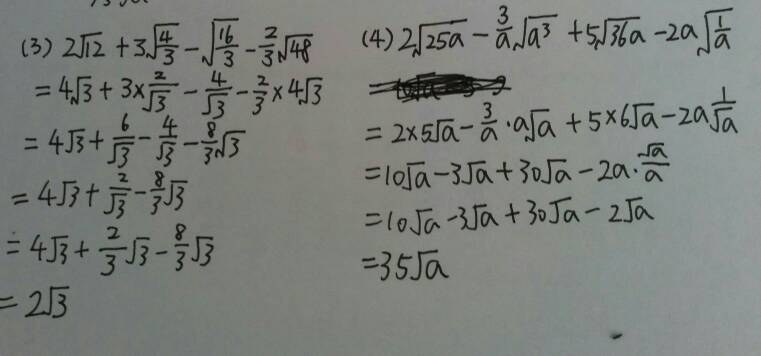 (3) 2√12 + 3√(4/3) - √(16/3) - 2/3√48
= 4√3 + 3×2/√3 - 4/√3 - 2/3×4√3
= 4√3 + 6/√3 - 4/√3 - 8/3√3
= 4√3 + 2/√3 - 8/3√3
= 4√3 + 2/3√3 - 8/3√3
= 2√3
(4) 2√25a - 3/a√a³ + 5√36a - 2a√(1/a)
= 2×5√a - 3/a·a√a + 5×6√a - 2a 1/√a
= 10√a - 3√a + 30√a - 2a·√a/a
= 10√a - 3√a + 30√a - 2√a
= 35√a